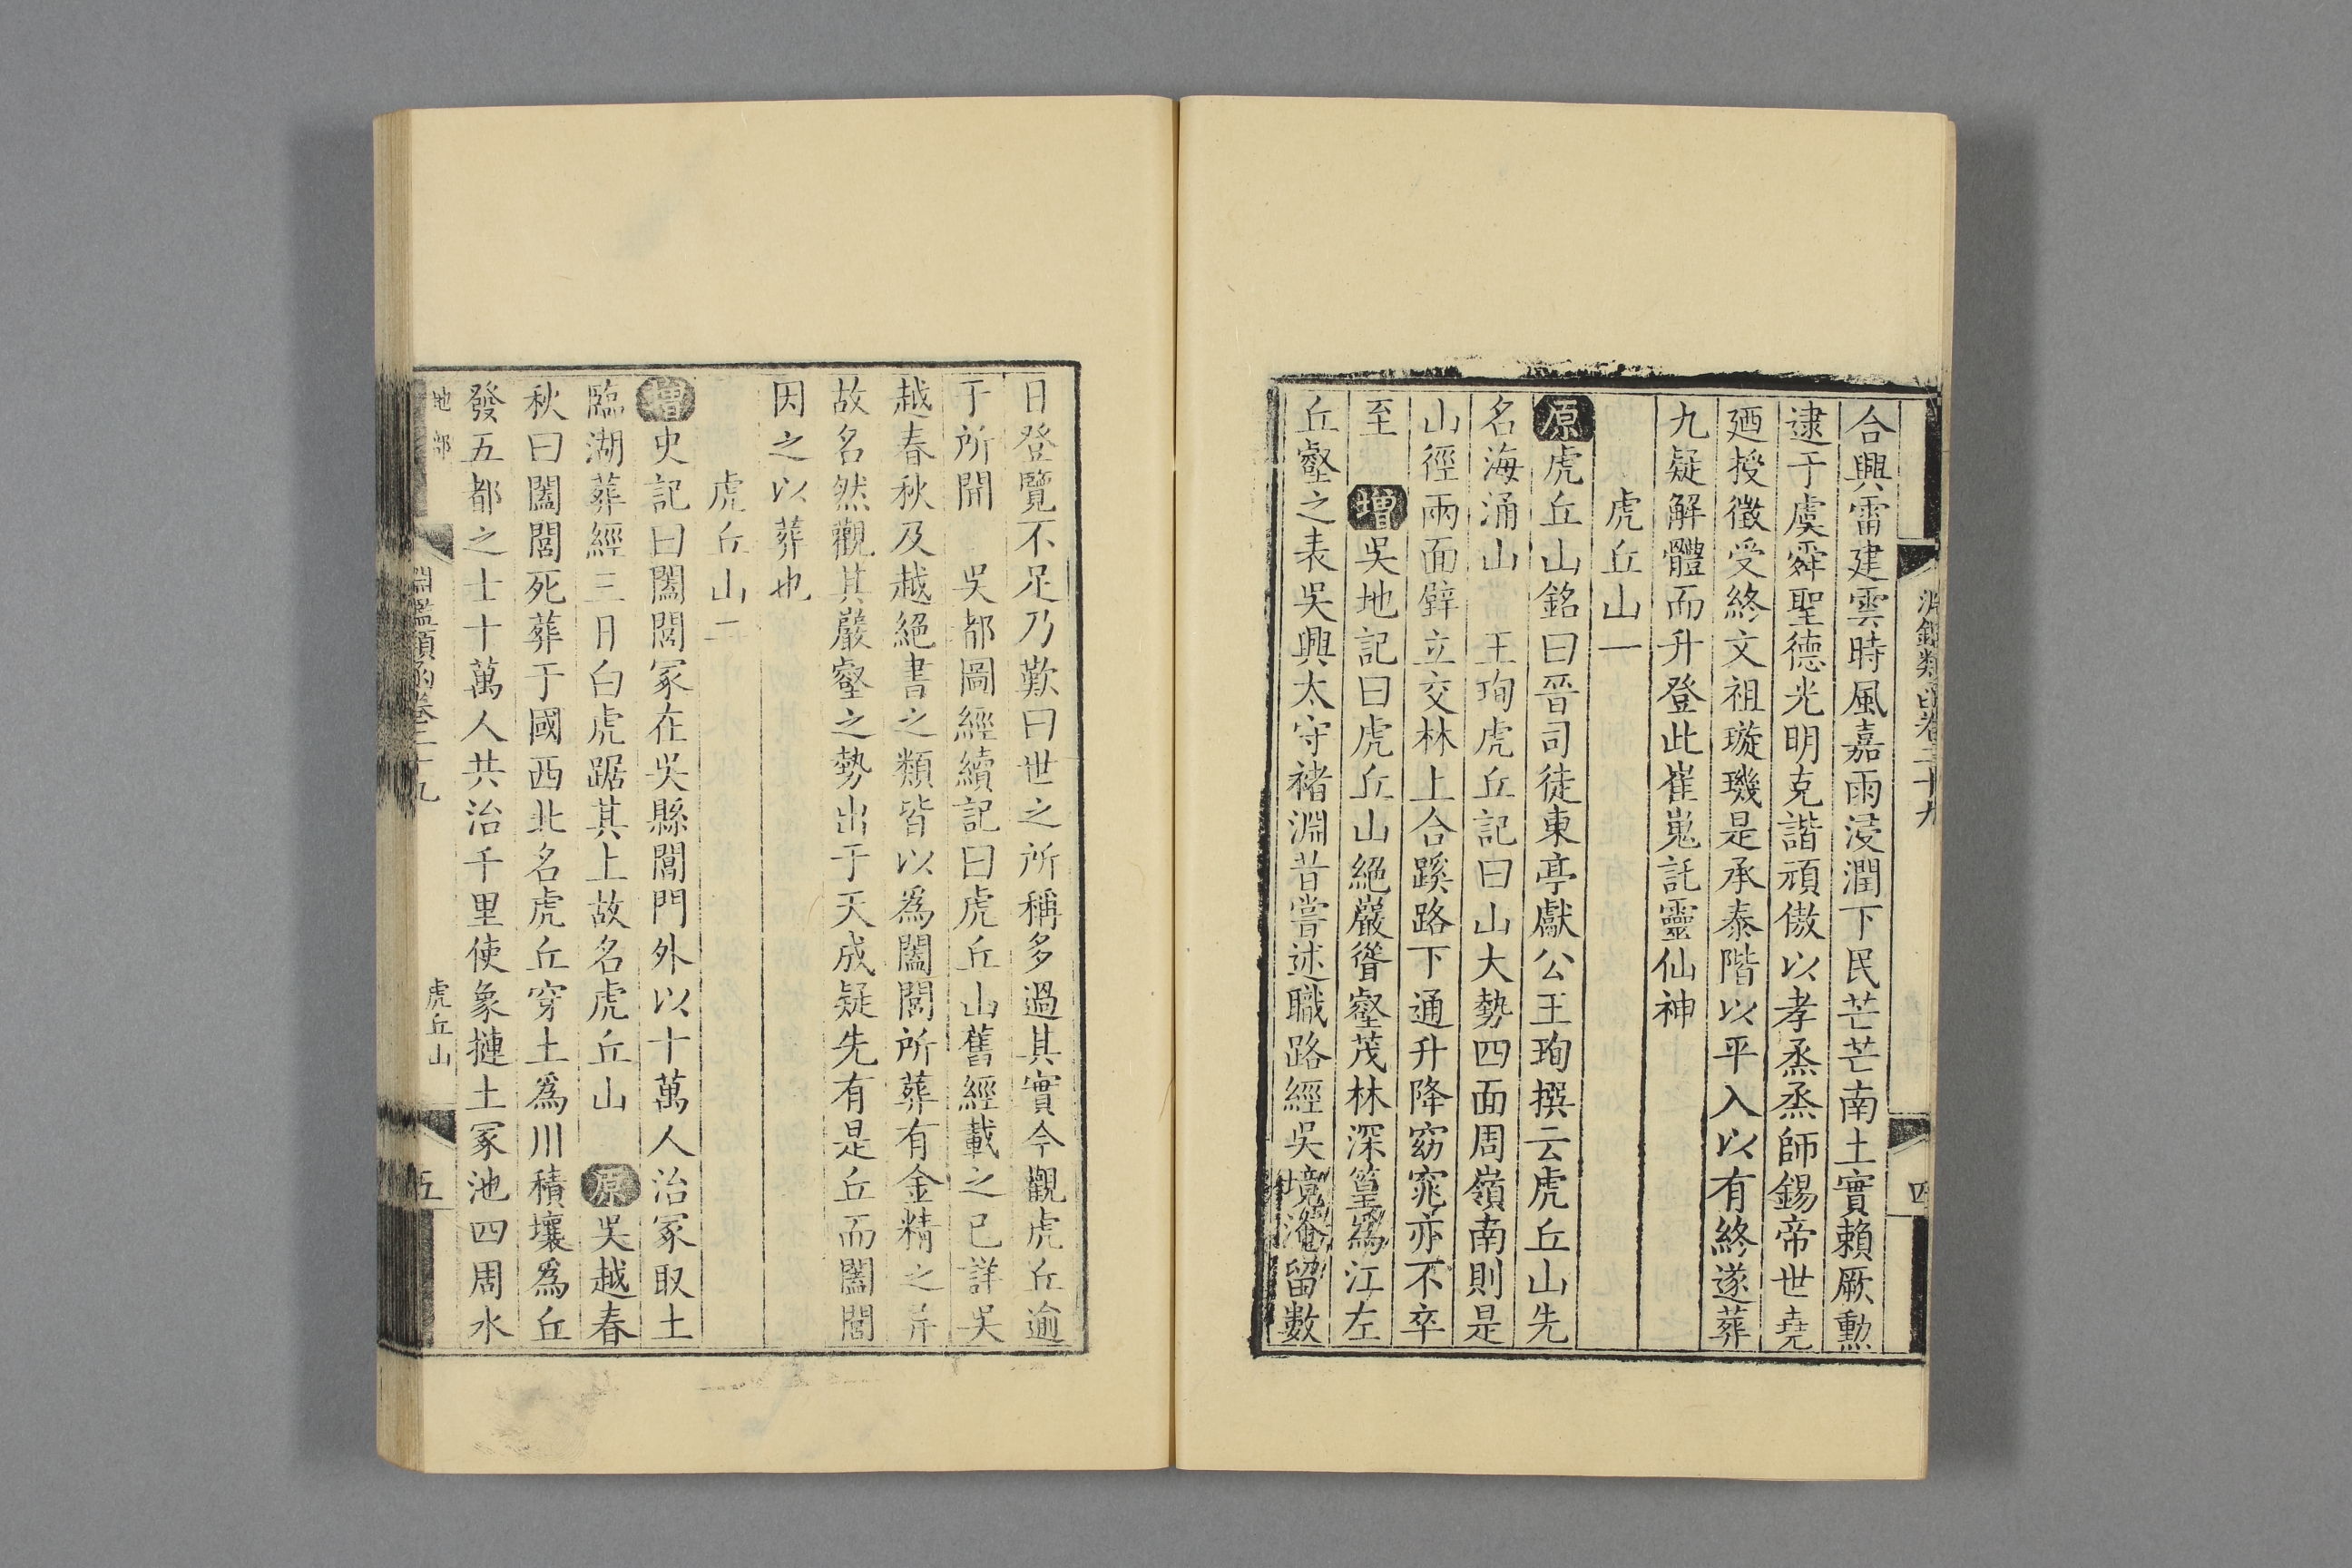 合興雷建雲時風嘉雨浸潤下民芒芒南土實賴厥勳
逮于虞舜聖德光明克諧頑傲以孝烝烝師錫帝世堯
廼授徵受終文祖璇璣是承泰階以平入以有終遂葬
九疑解體而升登此崔嵬託靈仙神
虎丘山一
原虎丘山銘曰晉司徒東亭獻公王珣撰云虎丘山先
名海涌山 王珣虎丘記曰山大勢四面周嶺南則是
山徑兩面壁立交林上合蹊路下通升降窈窕亦不卒
至 增吳地記曰虎丘山絕巖聳壑茂林深篁為江左
丘壑之表吳興太守褚淵昔嘗述職路經吳境淹留數
日登覽不足乃歎曰世之所稱多過其實今觀虎丘逾
于所聞 吳都圖經續記曰虎丘山舊經載之已詳吳
越春秋及越絕書之類皆以為闔閭所葬有金精之異
故名然觀其巖壑之勢出于天成疑先有是丘而闔閭
因之以葬也
虎丘山二
增史記曰闔閭冢在吳縣閶門外以十萬人治冢取土
臨湖葬經三日白虎踞其上故名虎丘山 原吳越春
秋曰闔閭死葬于國西北名虎丘穿土為川積壤為丘
發五都之士十萬人共治千里使象摙土冢池四周水
地部
淵鑑類函卷二十九
虎丘山
五